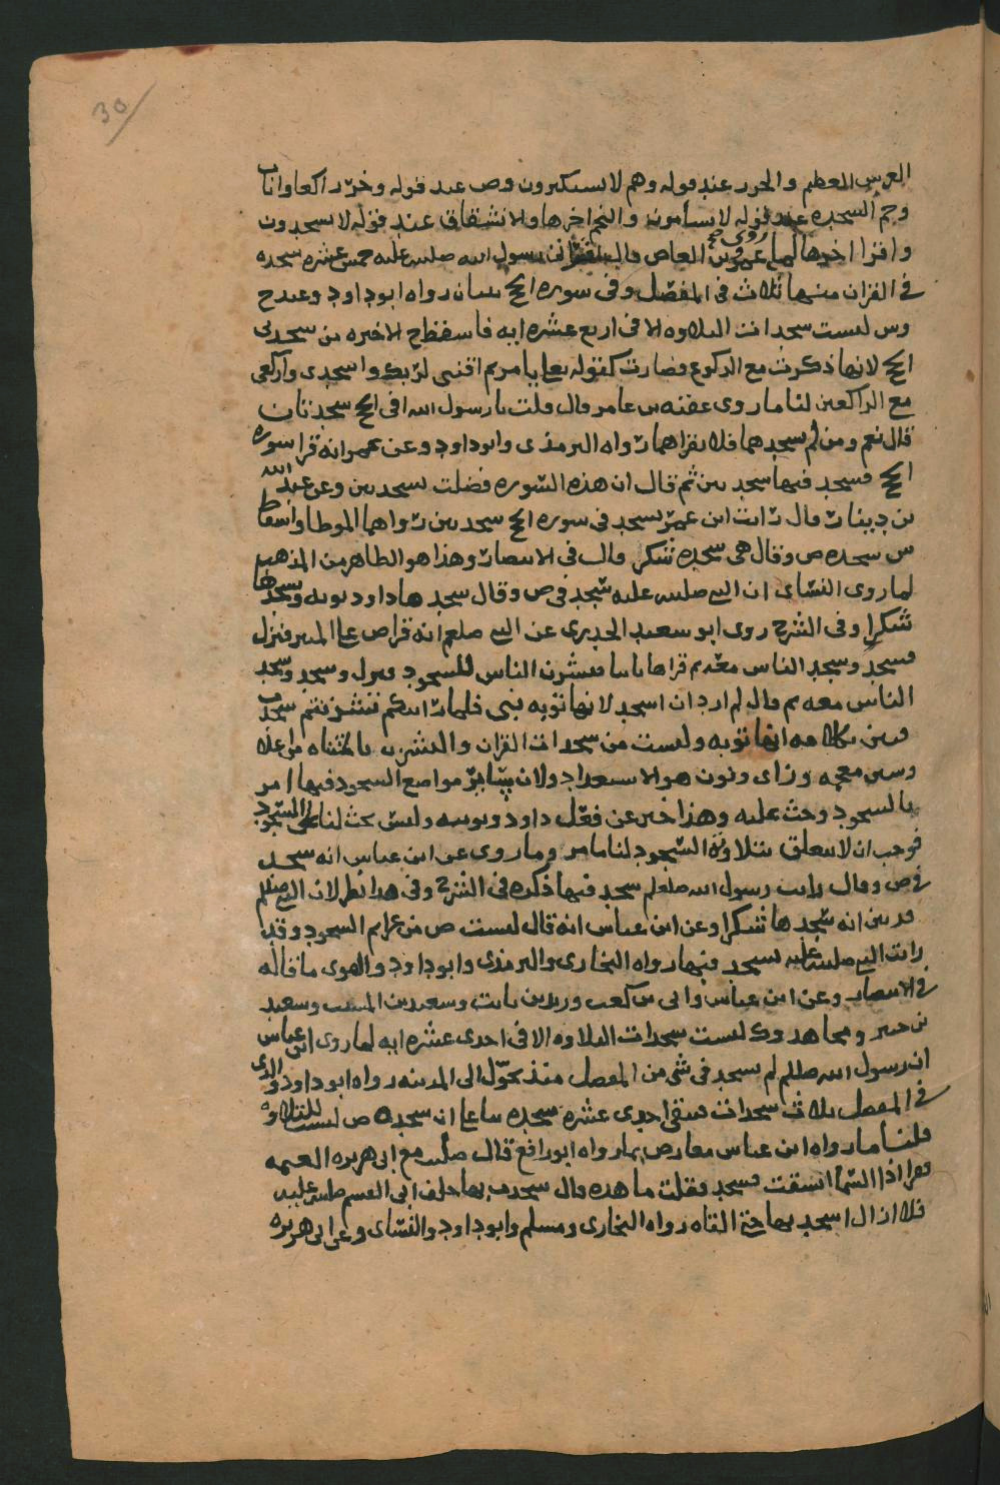 30
العرش العظيم والجرز عند قوله وهم لا يستكبرون وص عند قوله وخر راكعا واناب
وحم السجده عند قوله لا يسأمون والنجم اخرها والانشقاق عند قوله لا يسجدون
واقرا اخرها لما روي عمرو بن العاص قال رسول الله صلى الله عليه خمس عشره سجده
في القران منها ثلاث في المفصل وفي سورة الحج سجدتان رواه ابو داود وعند ح
وس ليست سجدات التلاوه الا في اربع عشره ايه فاسقط ح الاخيره من سجدتي
الحج لانها ذكرت مع الركوع فصارت كقوله تعالى يا مريم اقنتي لربك واسجدي واركعي
مع الراكعين لنا ما روى عقبه بن عامر قال قلت يا رسول الله افي الحج سجدتان
قال نعم ومن لم يسجدهما فلا يقراهما رواه الترمذي وابو داود وعن عمر انه قرا سورة
الحج فسجد فيها سجدتين ثم قال ان هذه السوره فضلت بسجدتين وعن عبد الله
بن دينار قال رايت ابن عمر يسجد في سورة الحج سجدتين رواهما الموطا واسقط
س سجده ص وقال هي سجده شكر قال في الانتصار وهذا هو الظاهر من المذهب
لما روى النسائ ان النبي صلى الله عليه سجد في ص وقال سجدها داود توبه ونسجدها
شكرا وفي الشرح روى ابو سعيد الخدري عن النبي صلعم انه قرا ص على المنبر فنزل
فسجد وسجد الناس معه ثم قراها ثانيا فتشزن الناس للسجود فنزل وسجد وسجد
الناس معه ثم قال لم ارد ان اسجد لانها توبه نبي فلما رايتكم تتشزنتم سجدت
فبين بكلامه انها توبه وليست من سجدات القران والتشزن بالمثناه من اعلاه
وشين معجمه وزاي ونون هو الاستعداد ولان سائر مواضع السجود فيها امر
بالسجود وحث عليه وهذا خبر عن فعل داود وتوبته وليس بحث لنا على السجود
فوجب ان لا يتعلق بتلاوته السجود لنا ما مر وما روى عن ابن عباس انه سجد
في ص وقال رايت رسول الله صلعم سجد فيها ذكره في الشرح وفي هذا نظر لان النبي صلعم
قد بين انه سجدها شكرا وعن ابن عباس انه قال ليست ص من عزايم السجود وقد
رايت النبي صلى الله عليه يسجد فيها رواه البخاري والترمذي وابو داود والقوي ما قاله
في الانتصار وعن ابن عباس وابي بن كعب وزيد بن ثابت وسعيد بن المسيب وسعيد
بن جبير ومجاهد وك ليست سجدات التلاوه الا في احدى عشره ايه لما روى ابن عباس
ان رسول الله صلعم لم يسجد في شي من المفصل منذ تحول الى المدينه رواه ابو داود والذي
في المفصل ثلاث سجدات فبقي احدى عشره سجده بناعلى ان سجده ص ليست للتلاوه
قلنا ما رواه ابن عباس معارض بما رواه ابو رافع قال صليت مع ابي هريره العتمه
فقرا اذا السما انشقت فسجد فقلت ما هذه قال سجدت بها خلف ابي القسم صلى الله عليه
فلا ازال اسجد بها حتى القاه رواه البخاري ومسلم وابو داود والنسائ وعن ابي هريره